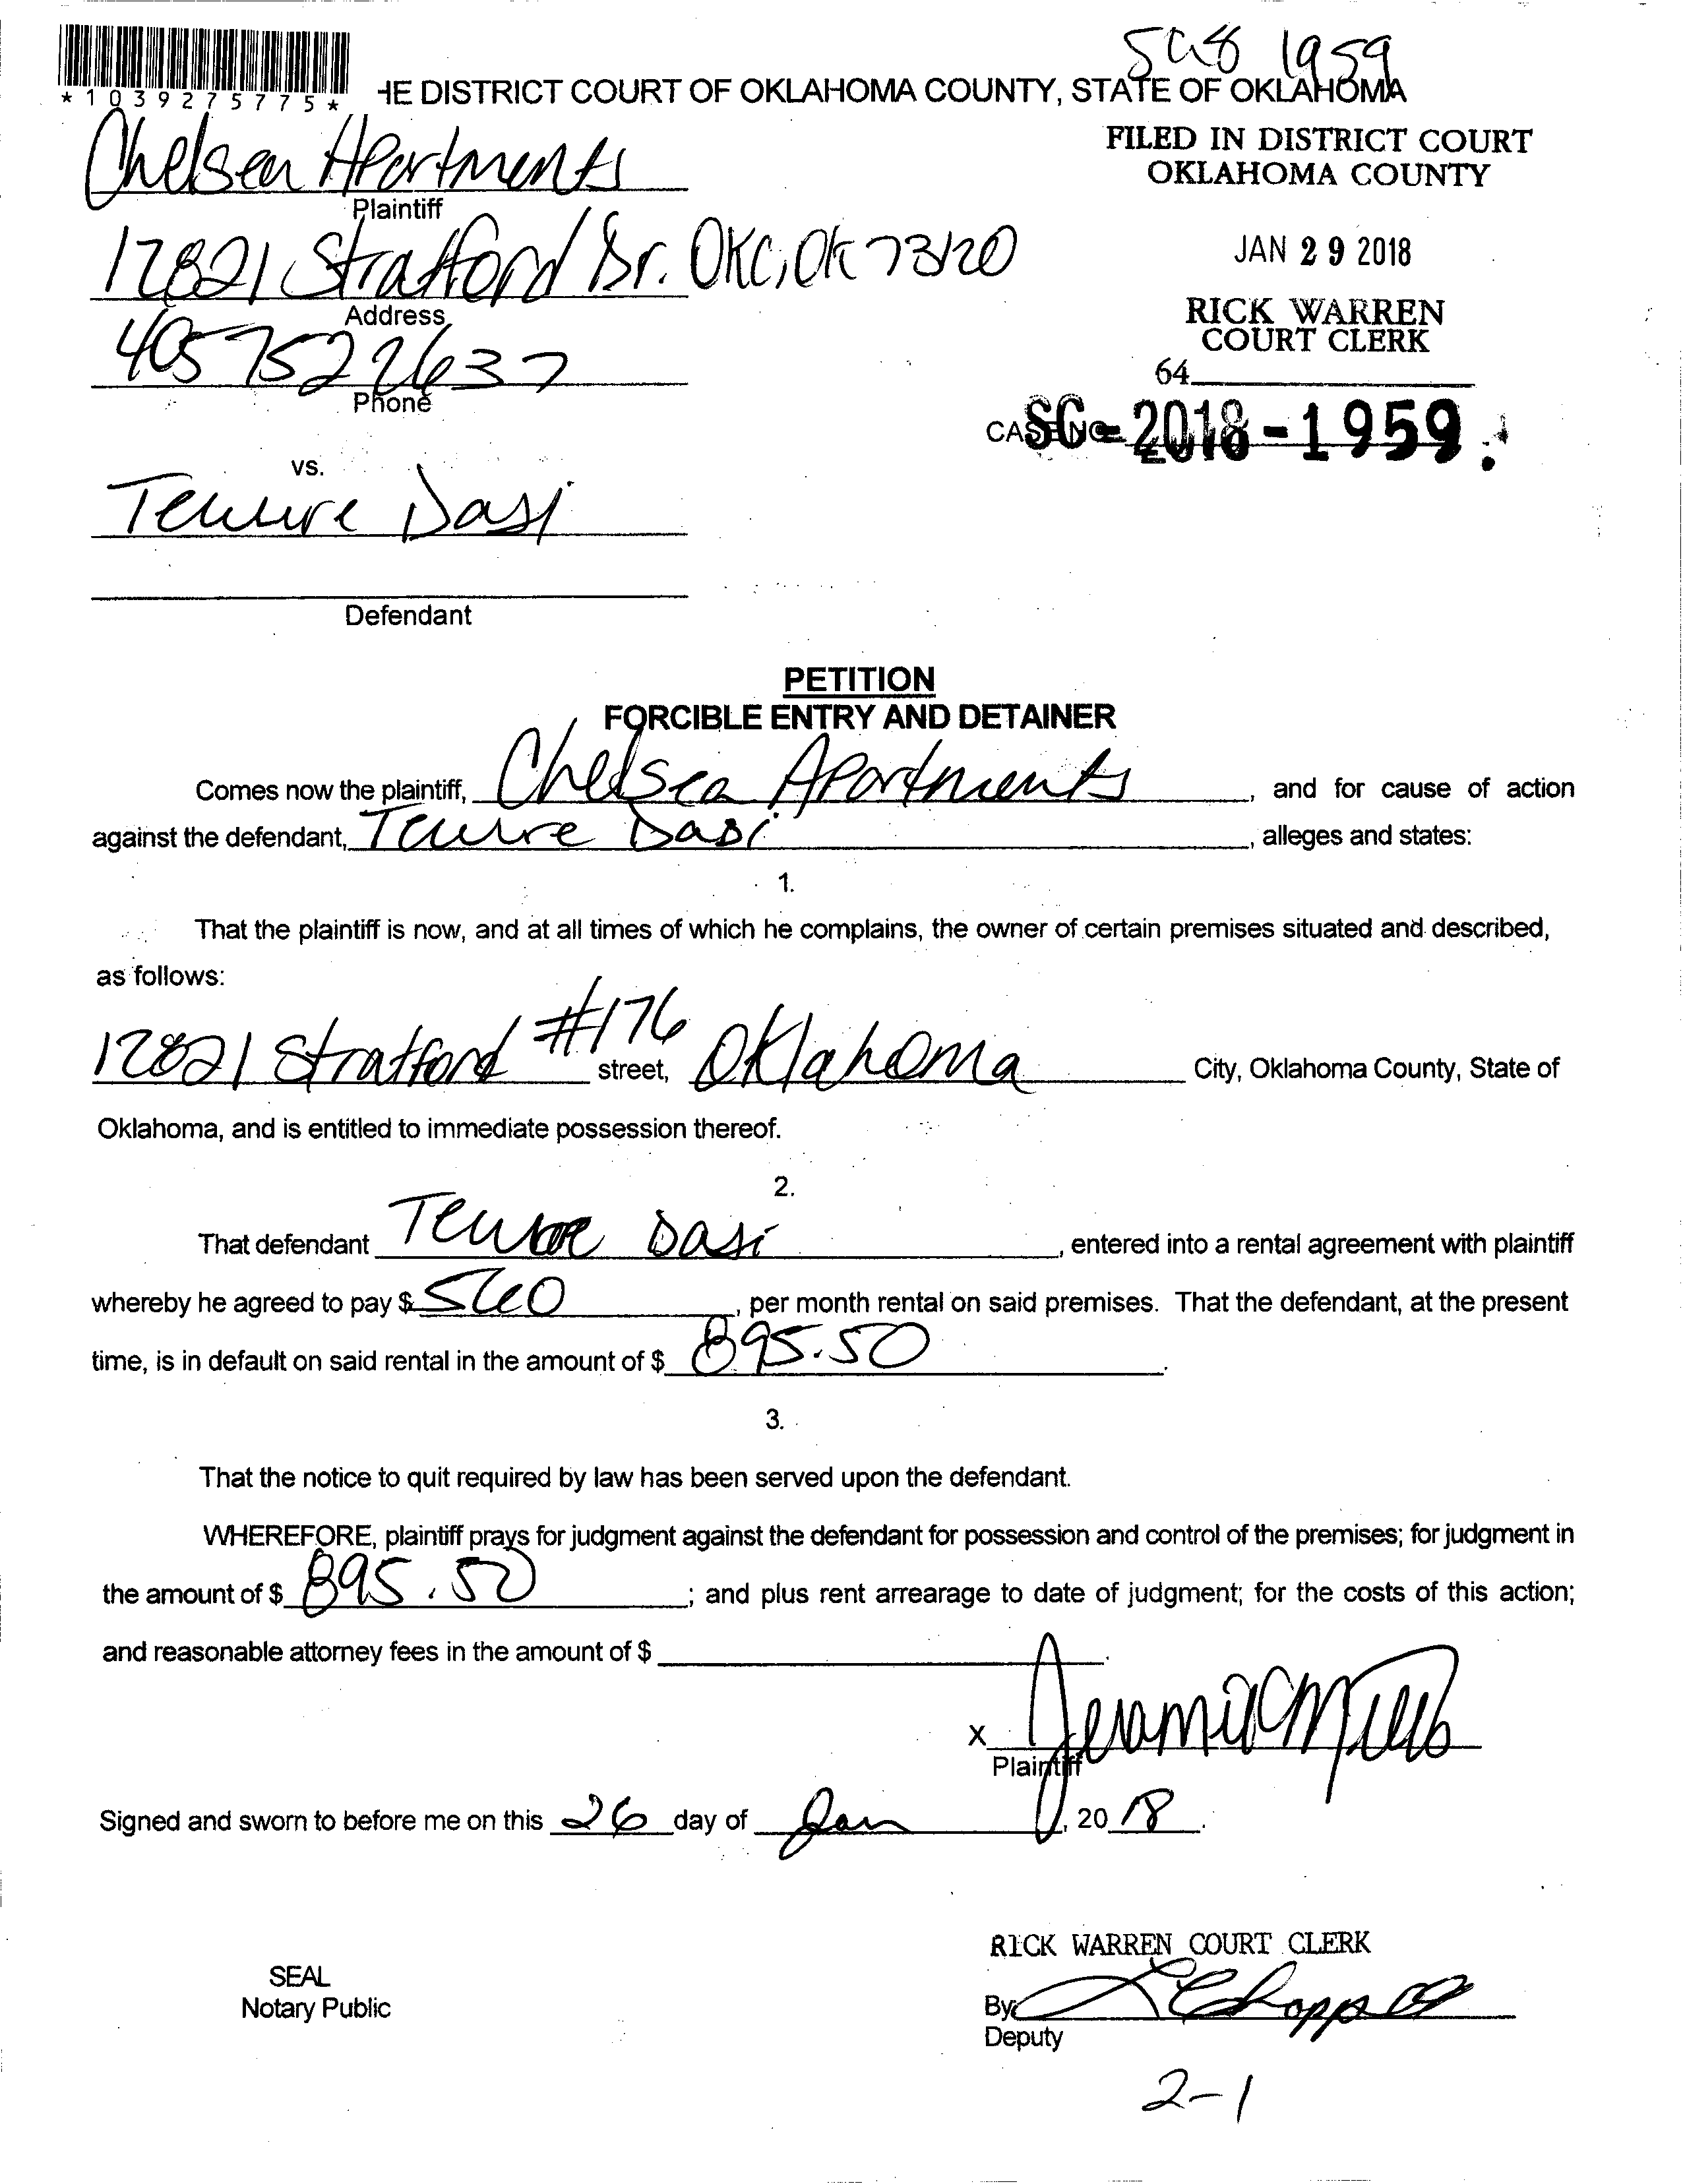 SC18 1959
*1039275775*
HE DISTRICT COURT OF OKLAHOMA COUNTY, STATE OF OKLAHOMA
Chelsea Apartments
Plaintiff
FILED IN DISTRICT COURT
OKLAHOMA COUNTY
12821 Stratford Dr. OKC, OK 73120
Address
JAN 29 2018
RICK WARREN
COURT CLERK
405 752 2637
Phone
64
CASE NO. SC-2018-1959
vs.
Dasi
Defendant
PETITION
FORCIBLE ENTRY AND DETAINER
Comes now the plaintiff, Chelsea Apartments, and for cause of action
against the defendant, Dasi, alleges and states:
1.
That the plaintiff is now, and at all times of which he complains, the owner of certain premises situated and described,
as follows:
12821 Stratford #176 street, Oklahoma City, Oklahoma County, State of
Oklahoma, and is entitled to immediate possession thereof.
2.
That defendant Dasi, entered into a rental agreement with plaintiff
whereby he agreed to pay $ 560, per month rental on said premises. That the defendant, at the present
time, is in default on said rental in the amount of $ 895.50.
3.
That the notice to quit required by law has been served upon the defendant.
WHEREFORE, plaintiff prays for judgment against the defendant for possession and control of the premises; for judgment in
the amount of $ 895.50; and plus rent arrearage to date of judgment; for the costs of this action;
and reasonable attorney fees in the amount of $
x
Plaintiff
Signed and sworn to before me on this 26 day of Jan, 20 18.
RICK WARREN COURT CLERK
SEAL
Notary Public
By
Deputy
2-1